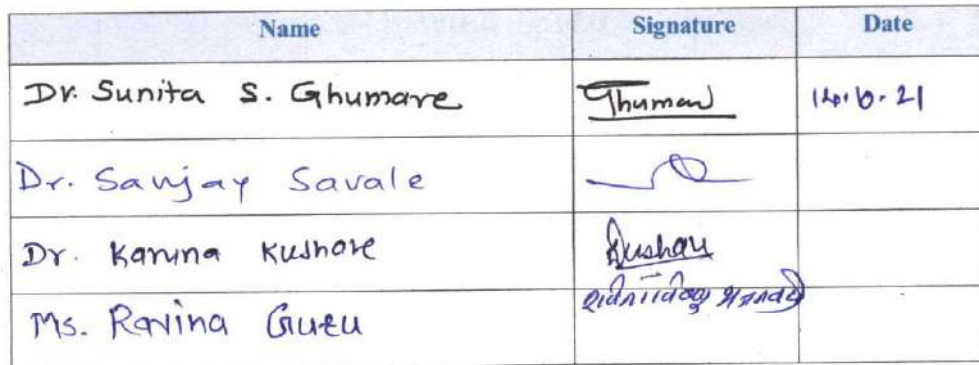 Name Signature Date
Dr. Sunita S. Ghumare Ghumare
Dr. Sanjay Savale
Dr. Karuna Kushare Kushare
Ms. Ravina Guru